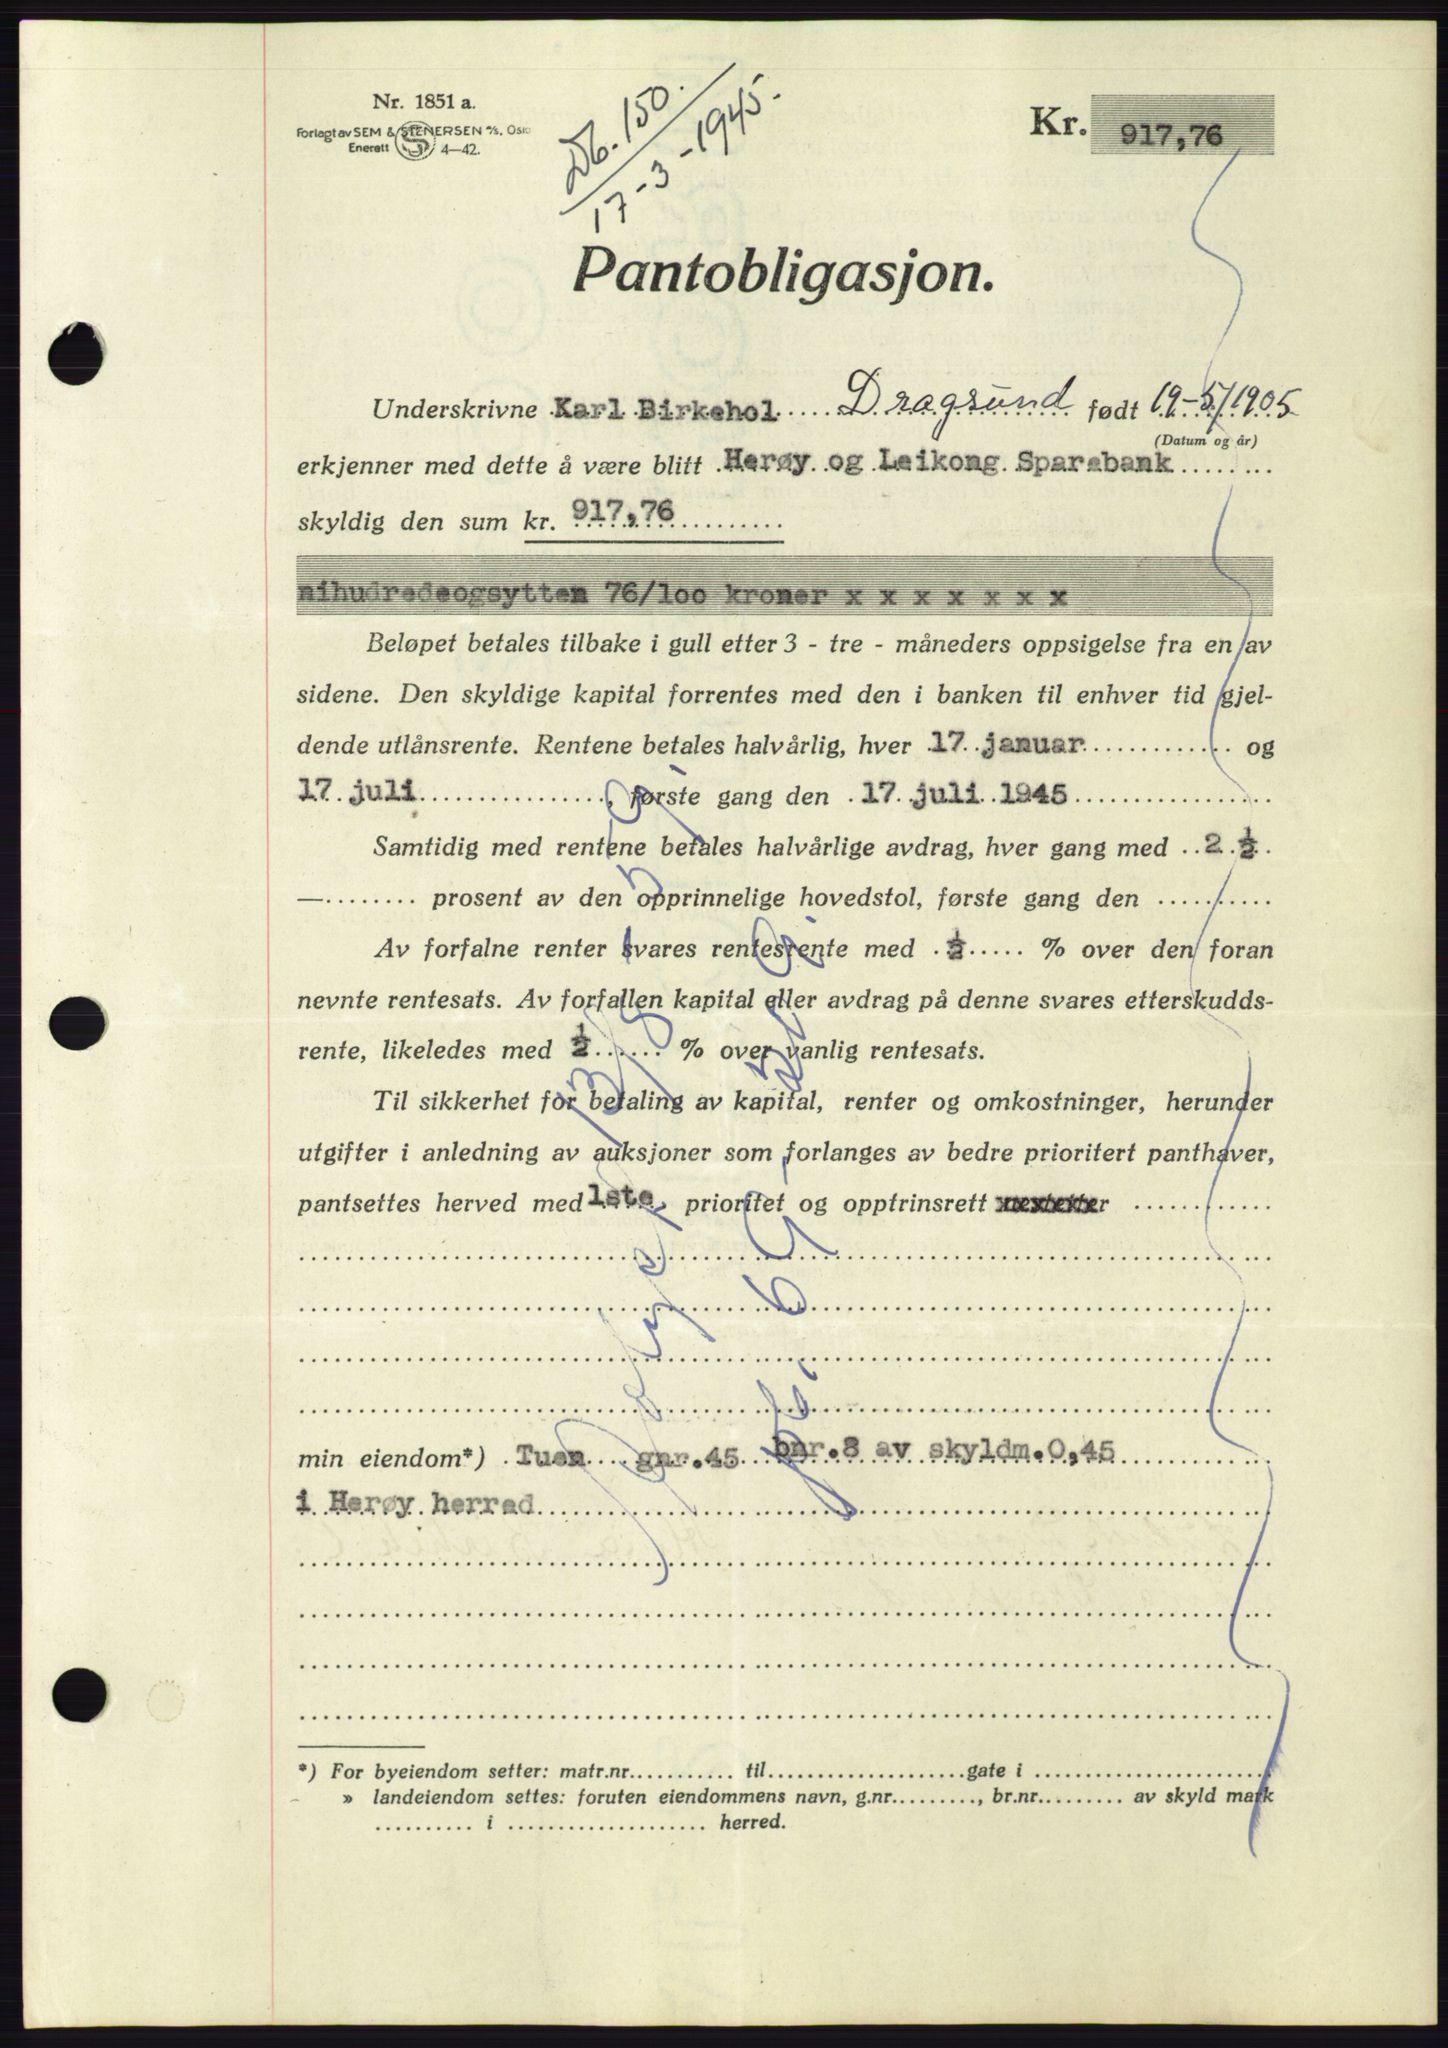 Nr. 1851 a.
Forlagt av SEM & STENERSEN A/S, Oslo
Enerett S 4—42.
Db. 150.
17-3-1945.
Kr. 917,76
Pantobligasjon.
Underskrivne Karl Birkehol Dragsund født 19-5/1905
(Datum og år)
erkjenner med dette å være blitt Herøy og Leikong Sparebank
skyldig den sum kr. 917,76
nihudredeogsytten 76/loo kroner x x x x x x x
Beløpet betales tilbake i gull etter 3 - tre - måneders oppsigelse fra en av
sidene. Den skyldige kapital forrentes med den i banken til enhver tid gjel-
dende utlånsrente. Rentene betales halvårlig, hver 17 januar og
17 juli, første gang den 17 juli 1945
Samtidig med rentene betales halvårlige avdrag, hver gang med 2 ½
— prosent av den opprinnelige hovedstol, første gang den
Av forfalne renter svares rentesrente med ½ % over den foran
nevnte rentesats. Av forfallen kapital eller avdrag på denne svares etterskudds-
rente, likeledes med ½ % over vanlig rentesats.
Til sikkerhet for betaling av kapital, renter og omkostninger, herunder
utgifter i anledning av auksjoner som forlanges av bedre prioritert panthaver,
pantsettes herved med 1ste prioritet og opptrinsrett
min eiendom*) Tuen gnr.45 bnr.8 av skyldm.0,45
i Herøy herred
*) For byeiendom setter: matr.nr. til gate i
» landeiendom settes: foruten eiendommens navn, g.nr., br.nr. av skyld mark
i herred.